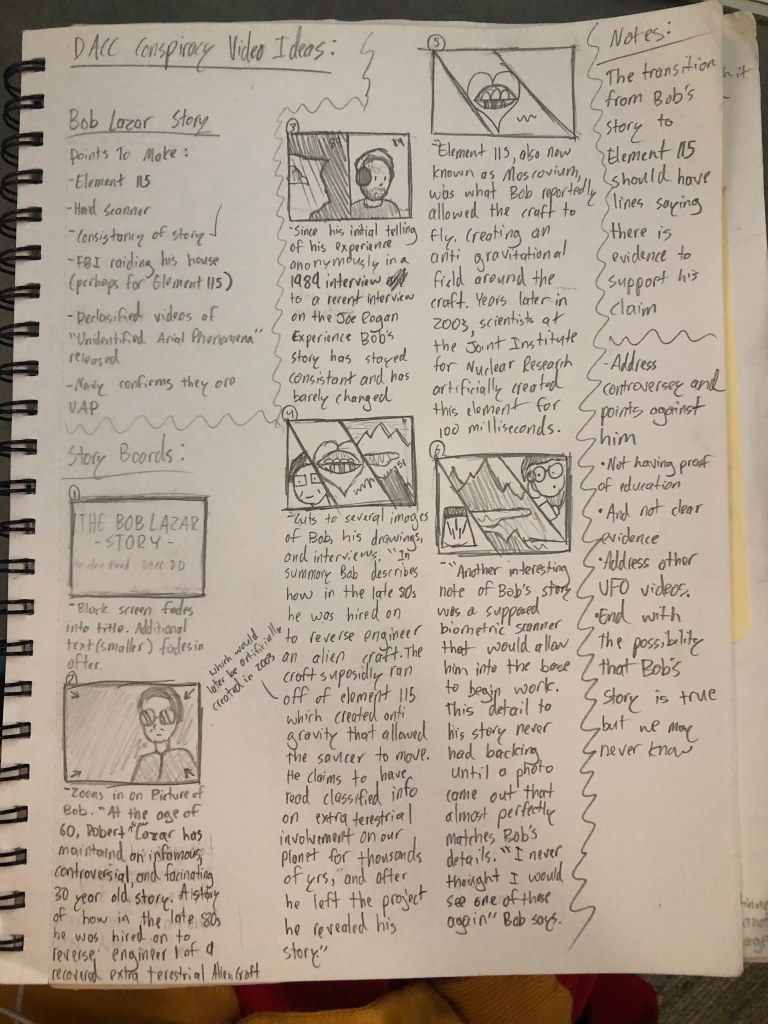 DACC Conspiracy Video Ideas:
Bob Lazar Story
Points To Make:
-Element 115
-Hand scanner
-Consistancy of story
-FBI raiding his house
(perhaps for Element 115)
-Declasified videos of
"Unidentified Arial Phenomena"
released
-Navy confirms they are
UAP
Story Boards:
1
THE BOB LAZAR
- STORY -
-Black screen fades
into title. Additional
text (smaller) fades in
after.
2
-Zooms in on Picture of
Bob. "At the age of
60, Robert Lazar has
maintaind an infamous,
controversial, and facinating
30 year old story. A story
of how in the late 80s
he was hired on to
reverse engineer 1 of 9
recovered extra terestrial Alien Craft
3
89
19
-Since his initial telling
of his experience
anonymously in a
1989 interview
to a recent interview
on the Joe Rogan
Experience Bob's
story has stayed
consistant and has
barely changed
4
-Cuts to several images
of Bob, his drawings,
and interviews. "In
summary Bob describes
how in the late 80s
he was hired on
to reverse engineer
an alien craft. The
craft suposidly ran
off of element 115
which would
later be artificially
created in 2003
which created anti
gravity that allowed
the saucer to move.
He claims to have
read classified info
on extra terestrial
involvement on our
planet for thousands
of yrs," and after
he left the project
he revealed his
story."
5
-Element 115, also now
known as Moscovium,
was what Bob reportedly
allowed the craft to
fly. Creating an
anti gravitational
field around the
craft. Years later in
2003, scientists at
the Joint Institute
for Nuclear Research
artificially created
this element for
100 milliseconds.
6
-"Another interesting
note of Bob's story
was a supposed
biometric scanner
that would allow
him into the base
to begin work.
This detail to
his story never
had backing
until a photo
came out that
almost perfectly
matches Bob's
details. "I never
thought I would
see one of these
again" Bob says.
Notes:
The transition
from Bob's
story to
Element 115
should have
lines saying
there is
evidence to
support his
claim
-Address
controversey and
points against
him
•Not having proof
of education
•And not clear
evidence
•Address other
UFO videos.
•End with
the possibility
that Bob's
story is true
but we may
never know